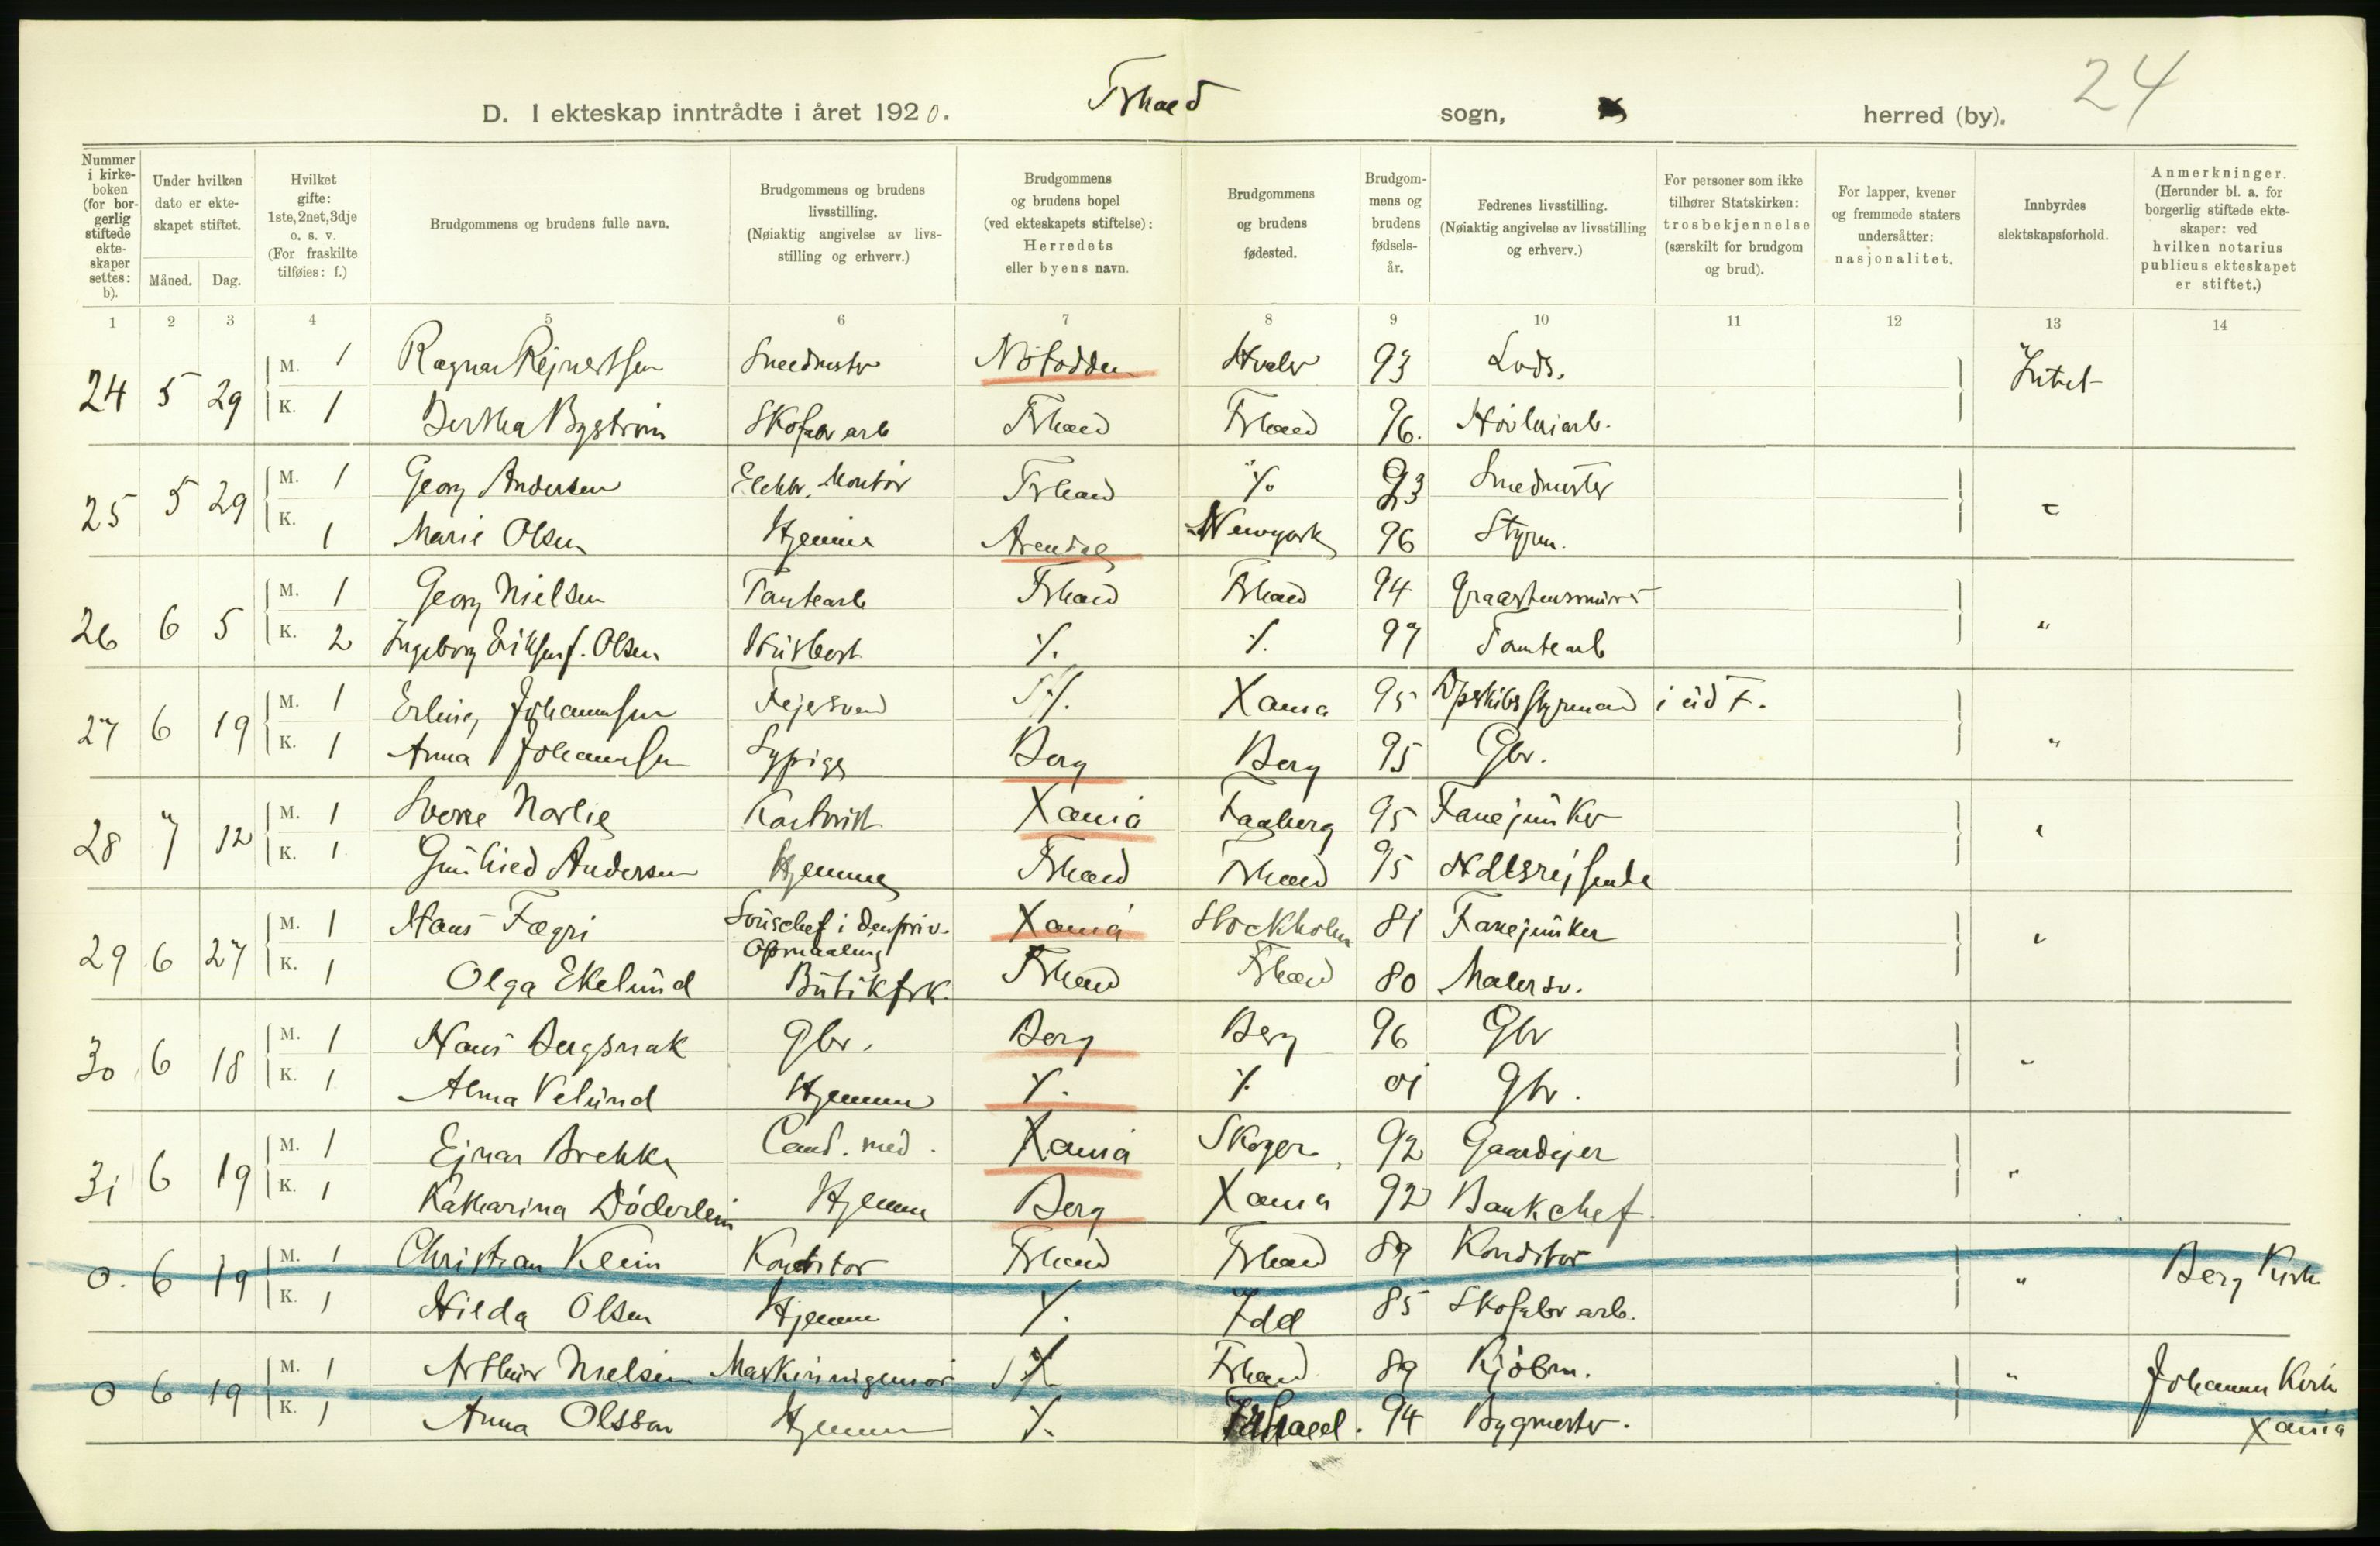 24
D. I ekteskap inntrådte i året 1920. Frhald sogn, herred (by).
Nummer i kirkeboken (for borgerlig stiftede ekteskaper settes: b).
Under hvilken dato er ekteskapet stiftet.
Måned. Dag.
Hvilket gifte: 1ste, 2net, 3dje o. s. v. (For fraskilte tilføies: f.)
Brudgommens og brudens fulle navn.
Brudgommens og brudens livsstilling. (Nøiaktig angivelse av livsstilling og erhverv.)
Brudgommens og brudens bopel (ved ekteskapets stiftelse): Herredets eller byens navn.
Brudgommens og brudens fødested.
Brudgommens og brudens fødselsår.
Fedrenes livsstilling. (Nøiaktig angivelse av livsstilling og erhverv.)
For personer som ikke tilhører Statskirken: trosbekjennelse (særskilt for brudgom og brud).
For lapper, kvener og fremmede staters undersåtter: nasjonalitet.
Innbyrdes slektskapsforhold.
Anmerkninger. (Herunder bl. a. for borgerlig stiftede ekteskaper: ved hvilken notarius publicus ekteskapet er stiftet.)
1 2 3 4 5 6 7 8 9 10 11 12 13 14
24 5 29 M. 1 Ragnar Rejnertsen Smedmester Notodden Hvaler 93 Lods. Intet
K. 1 Bertha Bystrøm Skofabr arb Frhald Frhald 96. Høvleriarb.
25 5 29 M. 1 Georg Andersen Elektr. Montør Frhald ٪ 93 Smedmester "
K. 1 Marie Olsen Hjemme Arendal Newyork 96 Styrm.
26 6 5 M. 1 Georg Nielsen Tomtearb Frhald Frhald 94 Graastensmurer "
K. 2 Ingeborg Eriksen f. Olsen Husbest ٪ ٪ 97 Tomtearb
27 6 19 M. 1 Erling Johannsen Fejersvend ٪ Xania 95 Opskibsstyrmand i ud F. "
K. 1 Anna Johannsen Sypige Berg Berg 95 Gbr.
28 7 12 M. 1 Sverre Norlie Xania Faaberg 95 Fanejunker "
K. 1 Gunhild Andersen Hjemme Frhald Frhald 95 Hdlsrejsende
29 6 27 M. 1 Hans Fægri Souschef i den priv. Opmaaling Xania Stockholm 81 Fanejunker "
K. 1 Olga Ekelund Butikfrk. Frhald Frhald 80 Malersv.
30 6 18 M. 1 Hans Bergsmak Gbr. Berg Berg 96 Gbr "
K. 1 Alma Velund Hjemme ٪ ٪ 01 Gbr.
31 6 19 M. 1 Ejnar Brekke Cand. med. Xania Skoger 92 Gaardejer "
K. 1 Katharina Döderlein Hjemme Berg Xania 92 Bankchef.
0. 6 19 M. 1 Christian Klein Konditor Frhald Frhald 89 Konditor " Berg Kirke
K. 1 Hilda Olsen Hjemme ٪ Idd 85 Skofabr arb.
0 6 19 M. 1 Arthur Nielsen Maskiningeniør ٪ Frhald 89 Kjöbm. " Johannes Kirke
K. 1 Anna Olsson Hjemme ٪ Frhald. 94 Bygmester. Xania